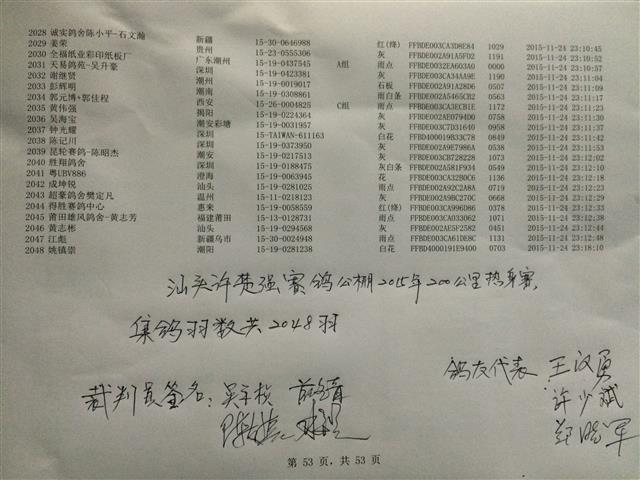 2028 诚实鸽舍陈小平-石文瀚 新疆 15-30-0646988 红(绛) FFBDE003CA3D8E84 1029 2015-11-24 23:10:45
2029 姜荣 贵州 15-23-0555306 灰 FFBDE002A91A5FD2 1191 2015-11-24 23:10:52
2030 全福纸业彩印纸板厂 广东潮州 15-19-0437545 A组 雨点 FFBDE0032EA603A0 0000 2015-11-24 23:10:57
2031 天易鸽苑-吴升豪 深圳 15-19-0423381 灰 FFBDE003CA34AA9E 1190 2015-11-24 23:11:04
2032 谢继贤 潮州 15-19-0019017 石板 FFBDE002A91A28D6 0507 2015-11-24 23:11:09
2033 彭辉明 潮南 15-19-0308961 雨白条 FFBDE002A5465CB2 0563 2015-11-24 23:11:17
2034 郭元博+郭佳程 西安 15-26-0004825 C组 雨点 FFBDE003CA3ECB1E 1172 2015-11-24 23:11:23
2035 黄伟强 揭阳 15-19-0224364 灰 FFBDE002AE0794D0 0758 2015-11-24 23:11:30
2036 吴海宝 潮安彩塘 15-19-0031957 灰 FFBDE003C7D31640 0958 2015-11-24 23:11:37
2037 钟光耀 深圳 15-TAIWAN-611163 白花 FFBD400019B33C78 0849 2015-11-24 23:11:42
2038 陈记川 深圳 15-19-0373950 灰 FFBDE002A9E7986A 0538 2015-11-24 23:11:53
2039 昆轮赛鸽-陈昭杰 潮安 15-19-0217513 灰 FFBDE003CB728228 1073 2015-11-24 23:12:02
2040 胜翔鸽舍 深圳 15-19-0188475 灰白条 FFBDE002A581F934 0549 2015-11-24 23:12:10
2041 粤UBV886 澄海 15-19-0063945 花 FFBDE003CA32B0C6 1136 2015-11-24 23:12:18
2042 成坤锐 汕头 15-19-0281025 雨点 FFBDE002A92C2A8A 0719 2015-11-24 23:12:23
2043 超豪鸽舍樊定凡 温州 15-11-0218123 灰 FFBDE002A9BC270C 0668 2015-11-24 23:12:29
2044 得胜赛鸽中心 惠来 15-19-0058559 红(绛) FFBDE003CA996D86 0378 2015-11-24 23:12:33
2045 莆田雄风鸽舍-黄志芳 福建莆田 15-13-0128731 雨点 FFBDE003CA033062 1071 2015-11-24 23:12:38
2046 黄志彬 汕头 15-19-0294568 灰 FFBDE002AE5F2582 0451 2015-11-24 23:12:44
2047 江彪 新疆乌市 15-30-0024948 雨点 FFBDE003CA61DE8C 1131 2015-11-24 23:12:48
2048 姚镇崇 潮阳 15-19-0281238 白花 FFBD4000191E9400 0703 2015-11-24 23:18:10
汕头许楚强赛鸽公棚2015年200公里热身赛
集鸽羽数共2048羽
鸽友代表 王汉勇
裁判员签名: 许少斌
郑晓军
第 53 页, 共 53 页